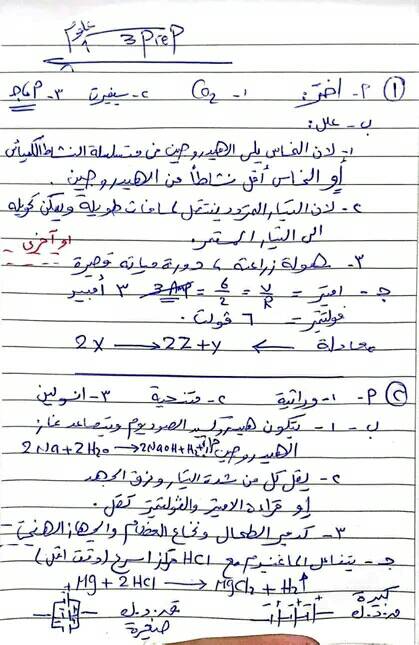 علوم 3 prep
① P- اختر: 1- CO2 2- سيفرت 3- DdP
ب - علل:
1- لان النحاس يلى الهيدروجين فى متسلسلة النشاط الكيميائى
أو النحاس أقل نشاطاً من الهيدروجين .
2- لان التيار المتردد ينتقل لمسافات طويلة ويمكن تحويله
الى التيار المستمر.
أو آخرى
3- سهولة زراعته ، دورة حياته قصيرة
جـ - اميتر = V/R = 6/2 = 3 أمبير
فولتميتر = 6 فولت .
معادلة ← 2X → 2Z + y
② P- 1- وراثية 2- متنحية 3- انسولين
ب - 1- يتكون هيدروكسيد الصوديوم ويتصاعد غاز
الهيدروجين 2Na+2H2O → 2NaOH+H2↑+حرارة
2- يقل كل من شدة التيار وفرق الجهد
أو قراءة الاميتر والفولتميتر تقل .
3- تدمير الطحال ونخاع العظام والجهاز الهضمى
جـ - يتفاعل الماغنسيوم مع HCl مركز أسرع (وقت أقل)
Mg + 2HCl → MgCl2 + H2↑
ق.د.ك كبيرة
ق.د.ك صغيرة